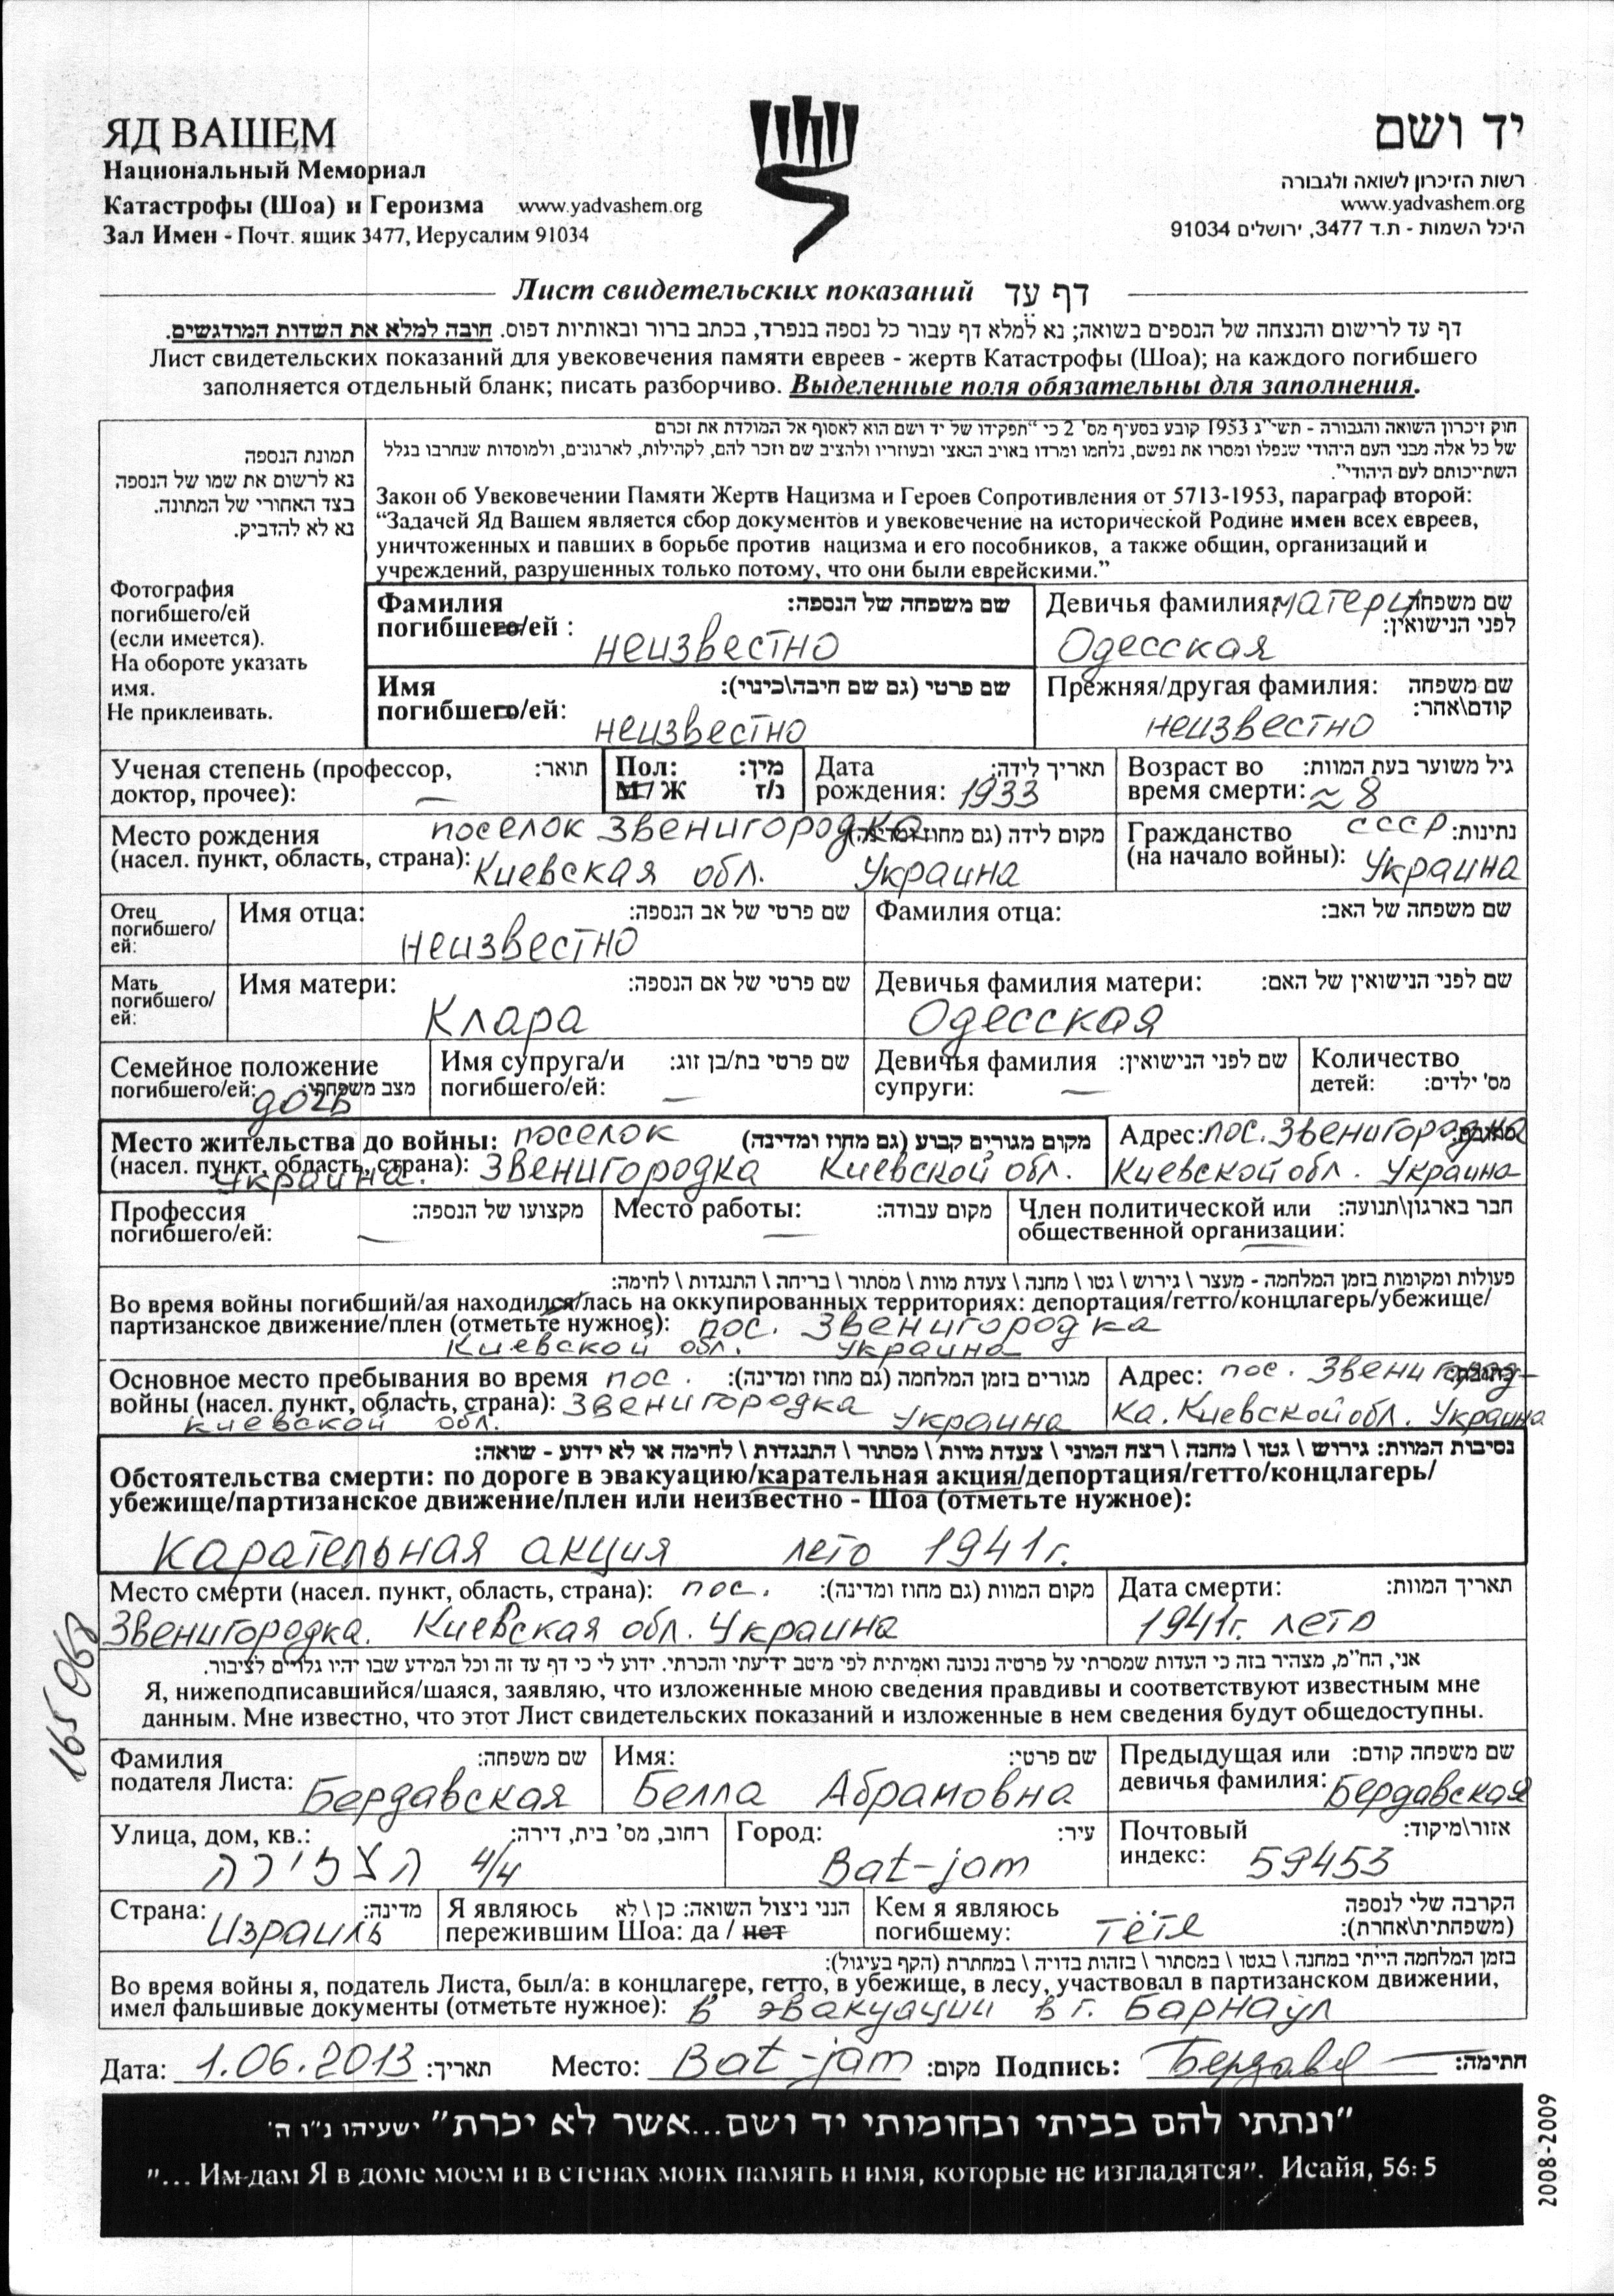 ЯД ВАШЕМ
Национальный Мемориал
Катастрофы (Шоа) и Героизма www.yadvashem.org
Зал Имен - Почт. ящик 3477, Иерусалим 91034
יד ושם
רשות הזיכרון לשואה ולגבורה
www.yadvashem.org
היכל השמות - ת.ד 3477, ירושלים 91034
Лист свидетельских показаний דף עד
דף עד לרישום והנצחה של הנספים בשואה; נא למלא דף עבור כל נספה בנפרד, בכתב ברור ובאותיות דפוס. חובה למלא את השדות המודגשים.
Лист свидетельских показаний для увековечения памяти евреев - жертв Катастрофы (Шоа); на каждого погибшего
заполняется отдельный бланк; писать разборчиво. Выделенные поля обязательны для заполнения.
תמונת הנספה
נא לרשום את שמו של הנספה
בצד האחורי של המתונה.
נא לא להדביק.
Фотография
погибшего/ей
(если имеется).
На обороте указать
имя.
Не приклеивать.
חוק זיכרון השואה והגבורה - תשי"ג 1953 קובע בסעיף מס' 2 כי "תפקידו של יד ושם הוא לאסוף אל המולדת את זכרם
של כל אלה מבני העם היהודי שנפלו ומסרו את נפשם, נלחמו ומרדו באויב הנאצי ובעוזריו ולהציב שם וזכר להם, לקהילות, לארגונים, ולמוסדות שנחרבו בגלל
השתייכותם לעם היהודי".
Закон об Увековечении Памяти Жертв Нацизма и Героев Сопротивления от 5713-1953, параграф второй:
“Задачей Яд Вашем является сбор документов и увековечение на исторической Родине имен всех евреев,
уничтоженных и павших в борьбе против нацизма и его пособников, а также общин, организаций и
учреждений, разрушенных только потому, что они были еврейскими.”
Фамилия שם משפחה של הנספה:
погибшего/ей : неизвестно
Девичья фамилия: матери שם משפחה
לפני הנישואין:
Одесская
Имя שם פרטי (גם שם חיבה\כינוי):
погибшего/ей: неизвестно
Прежняя/другая фамилия: שם משפחה
קודם\אחר:
неизвестно
Ученая степень (профессор, תואר:
доктор, прочее): —
Пол: מין:
М / Ж ז/נ
Дата תאריך לידה:
рождения: 1933
Возраст во גיל משוער בעת המוות:
время смерти: ≈ 8
Место рождения поселок Звенигородка מקום לידה (גם מחוז ומדינה):
(насел. пункт, область, страна): Киевская обл. Украина
Гражданство СССР נתינות:
(на начало войны): Украина
Отец
погибшего/
ей:
Имя отца: שם פרטי של אב הנספה:
неизвестно
Фамилия отца: שם משפחה של האב:
Мать
погибшего/
ей:
Имя матери: שם פרטי של אם הנספה:
Клара
Девичья фамилия матери: שם לפני הנישואין של האם:
Одесская
Семейное положение
погибшего/ей: מצב משפחתי:
дочь
Имя супруга/и שם פרטי בת/בן זוג:
погибшего/ей: —
Девичья фамилия שם לפני הנישואין:
супруги: —
Количество
детей: מס' ילדים:
Место жительства до войны: поселок מקום מגורים קבוע (גם מחוז ומדינה)
(насел. пункт, область, страна): Звенигородка Киевской обл.
Украина.
Адрес: пос. Звенигородка
Киевской обл. Украина
Профессия מקצועו של הנספה:
погибшего/ей: —
Место работы: מקום עבודה:
—
Член политической или חבר בארגון\תנועה:
общественной организации: —
פעולות ומקומות בזמן המלחמה - מעצר \ גירוש \ גטו \ מחנה \ צעדת מוות \ מסתור \ בריחה \ התנגדות \ לחימה:
Во время войны погибший/ая находился/лась на оккупированных территориях: депортация/гетто/концлагерь/убежище/
партизанское движение/плен (отметьте нужное): пос. Звенигородка
Киевской обл. Украина
Основное место пребывания во время пос. מגורים בזמן המלחמה (גם מחוז ומדינה):
войны (насел. пункт, область, страна): Звенигородка
Киевской обл. Украина
Адрес: пос. Звенигород-
ка. Киевской обл. Украина
נסיבות המוות: גירוש \ גטו \ מחנה \ רצח המוני \ צעדת מוות \ מסתור \ התנגדות \ לחימה או לא ידוע - שואה:
Обстоятельства смерти: по дороге в эвакуацию/карательная акция/депортация/гетто/концлагерь/
убежище/партизанское движение/плен или неизвестно - Шоа (отметьте нужное):
Карательная акция лето 1941 г.
Место смерти (насел. пункт, область, страна): пос. מקום המוות (גם מחוז ומדינה):
Звенигородка. Киевская обл. Украина
Дата смерти: תאריך המוות:
1941г. лето
אני, הח"מ, מצהיר בזה כי העדות שמסרתי על פרטיה נכונה ואמיתית לפי מיטב ידיעתי והכרתי. ידוע לי כי דף עד זה וכל המידע שבו יהיו גלויים לציבור.
Я, нижеподписавшийся/шаяся, заявляю, что изложенные мною сведения правдивы и соответствуют известным мне
данным. Мне известно, что этот Лист свидетельских показаний и изложенные в нем сведения будут общедоступны.
Фамилия שם משפחה:
подателя Листа: Бердавская
Имя: שם פרטי:
Белла Абрамовна
Предыдущая или שם משפחה קודם:
девичья фамилия: Бердавская
Улица, дом, кв.: רחוב, מס' בית, דירה:
הצפירה 4/4
Город: עיר:
Bat-jam
Почтовый אזור\מיקוד:
индекс: 59453
Страна: מדינה:
Израиль
Я являюсь הנני ניצול השואה: כן \ לא
пережившим Шоа: да / нет
Кем я являюсь הקרבה שלי לנספה
погибшему: тётя (משפחתית\אחרת):
בזמן המלחמה הייתי במחנה \ בגטו \ במסתור \ בזהות בדויה \ במחתרת (הקף בעיגול):
Во время войны я, податель Листа, был/а: в концлагере, гетто, в убежище, в лесу, участвовал в партизанском движении,
имел фальшивые документы (отметьте нужное): в эвакуации в г. Барнаул
Дата: 1.06.2013 תאריך: Место: Bat-jam מקום: Подпись: Бердавс חתימה:
"ונתתי להם בביתי ובחומותי יד ושם...אשר לא יכרת" ישעיהו נ"ו ה'
"... Им дам Я в доме моем и в стенах моих память и имя, которые не изгладятся". Исайя, 56: 5
2008-2009